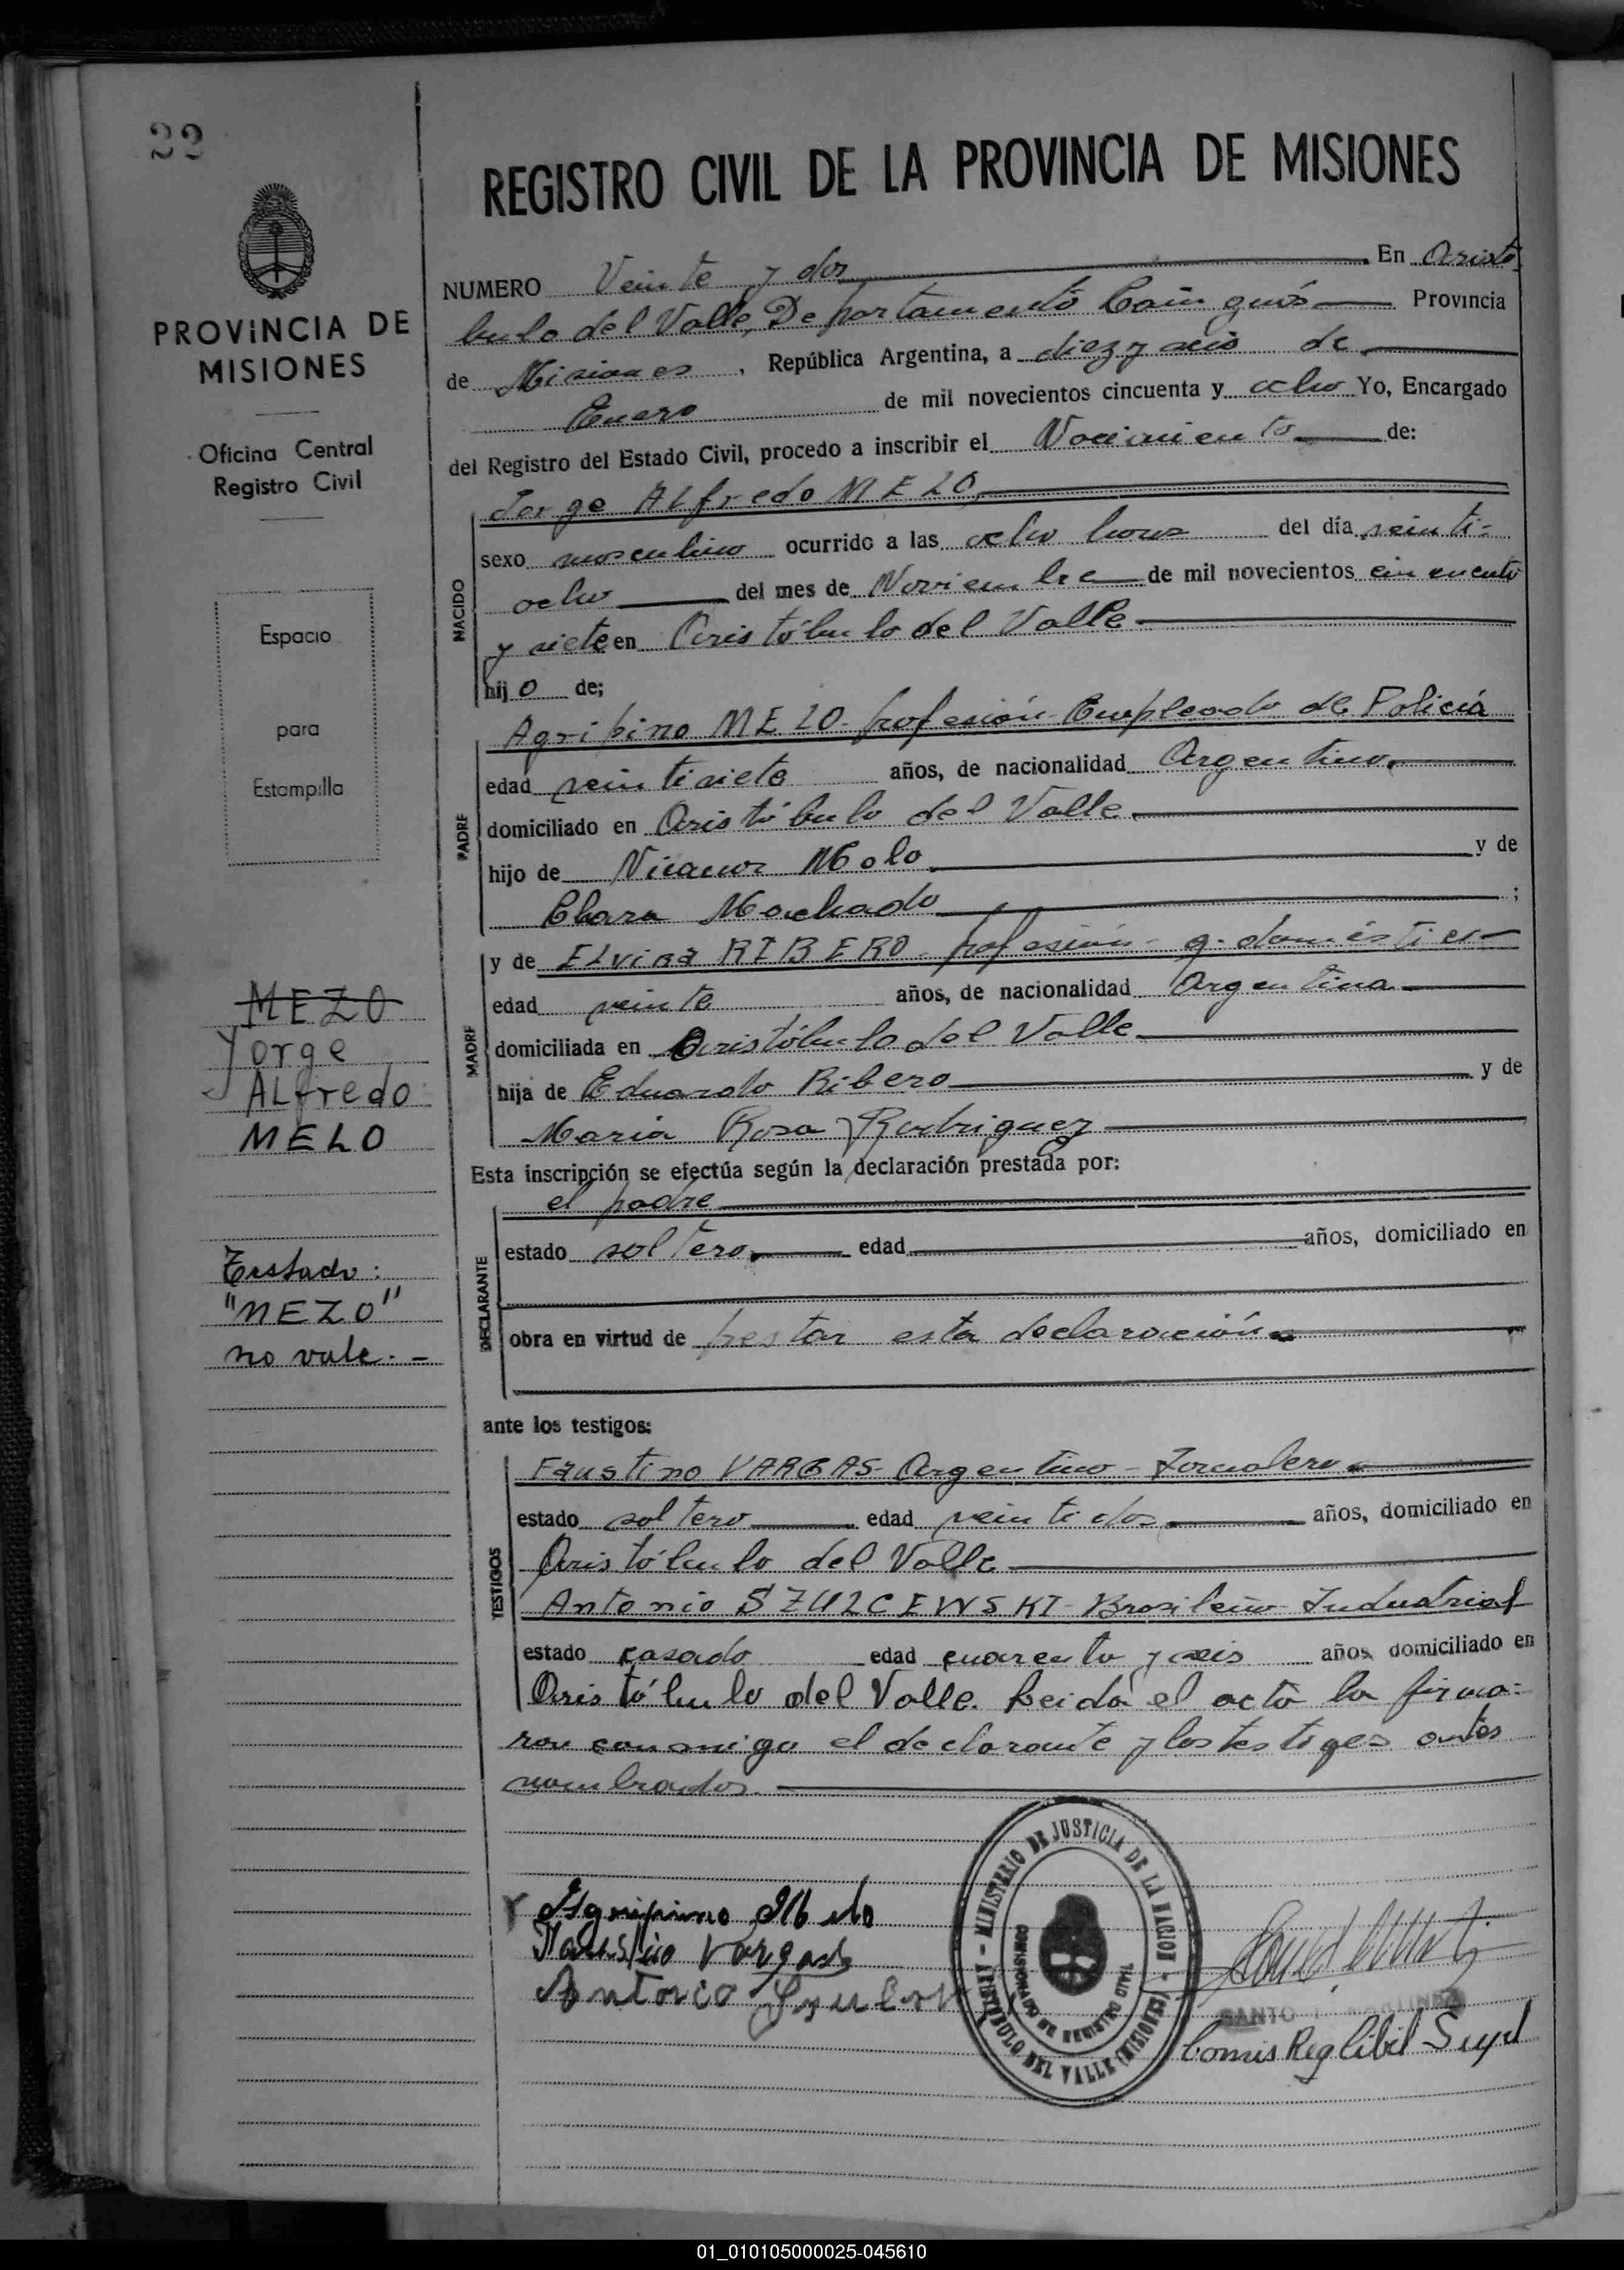 22
PROVINCIA DE
MISIONES
Oficina Central
Registro Civil
Espacio
para
Estampilla
MEZO
Jorge
ALfredo
MELO
Testado:
"MEZO"
no vale.-
REGISTRO CIVIL DE LA PROVINCIA DE MISIONES
NUMERO Veinte y dos En Aristó
bulo del Valle, Departamento Cainguás Provincia
de Misiones, República Argentina, a diez y seis de
Enero de mil novecientos cincuenta y ocho Yo, Encargado
del Registro del Estado Civil, procedo a inscribir el Nacimiento de:
Jorge ALfredo MELO,
NACIDO
sexo masculino ocurrido a las ocho horas del día veinti=
ocho del mes de Noviembre de mil novecientos cincuenta
y siete en Aristóbulo del Valle
hijo de;
PADRE
Agripino MELO- profesión- Empleado de Policía
edad veintisiete años, de nacionalidad Argentino,
domiciliado en Aristóbulo del Valle.
hijo de Nicanor Melo y de
Clara Machado ;
MADRE
y de ELvira RIBERO- profesión- q. domésticos
edad veinte años, de nacionalidad Argentina
domiciliada en Aristóbulo del Valle
hija de Eduardo Ribero y de
Maria Rosa Rodriguez
Esta inscripción se efectúa según la declaración prestada por:
DECLARANTE
el padre
estado soltero, edad años, domiciliado en
obra en virtud de prestar esta declaración
ante los testigos:
TESTIGOS
Faustino VARGAS- Argentino- Jornalero
estado soltero edad veintidos años, domiciliado en
Aristóbulo del Valle
Antonio SZULCEWSKI- Brasileño- Industrial
estado casado edad cuarenta y seis años, domiciliado en
Aristóbulo del Valle. Leída el acta la firma=
ron conmigo el declarante y los testigos antes
nombrados.
Agripino Melo
Faustino Vargas
Antonio
MINISTERIO DE JUSTICIA DE LA NACION
COMISIONADO DE REGISTRO CIVIL
ARISTOBULO DEL VALLE (MISIONES)
SANTO MARTINEZ
Comis Reg Cibil Supl
01_010105000025-045610